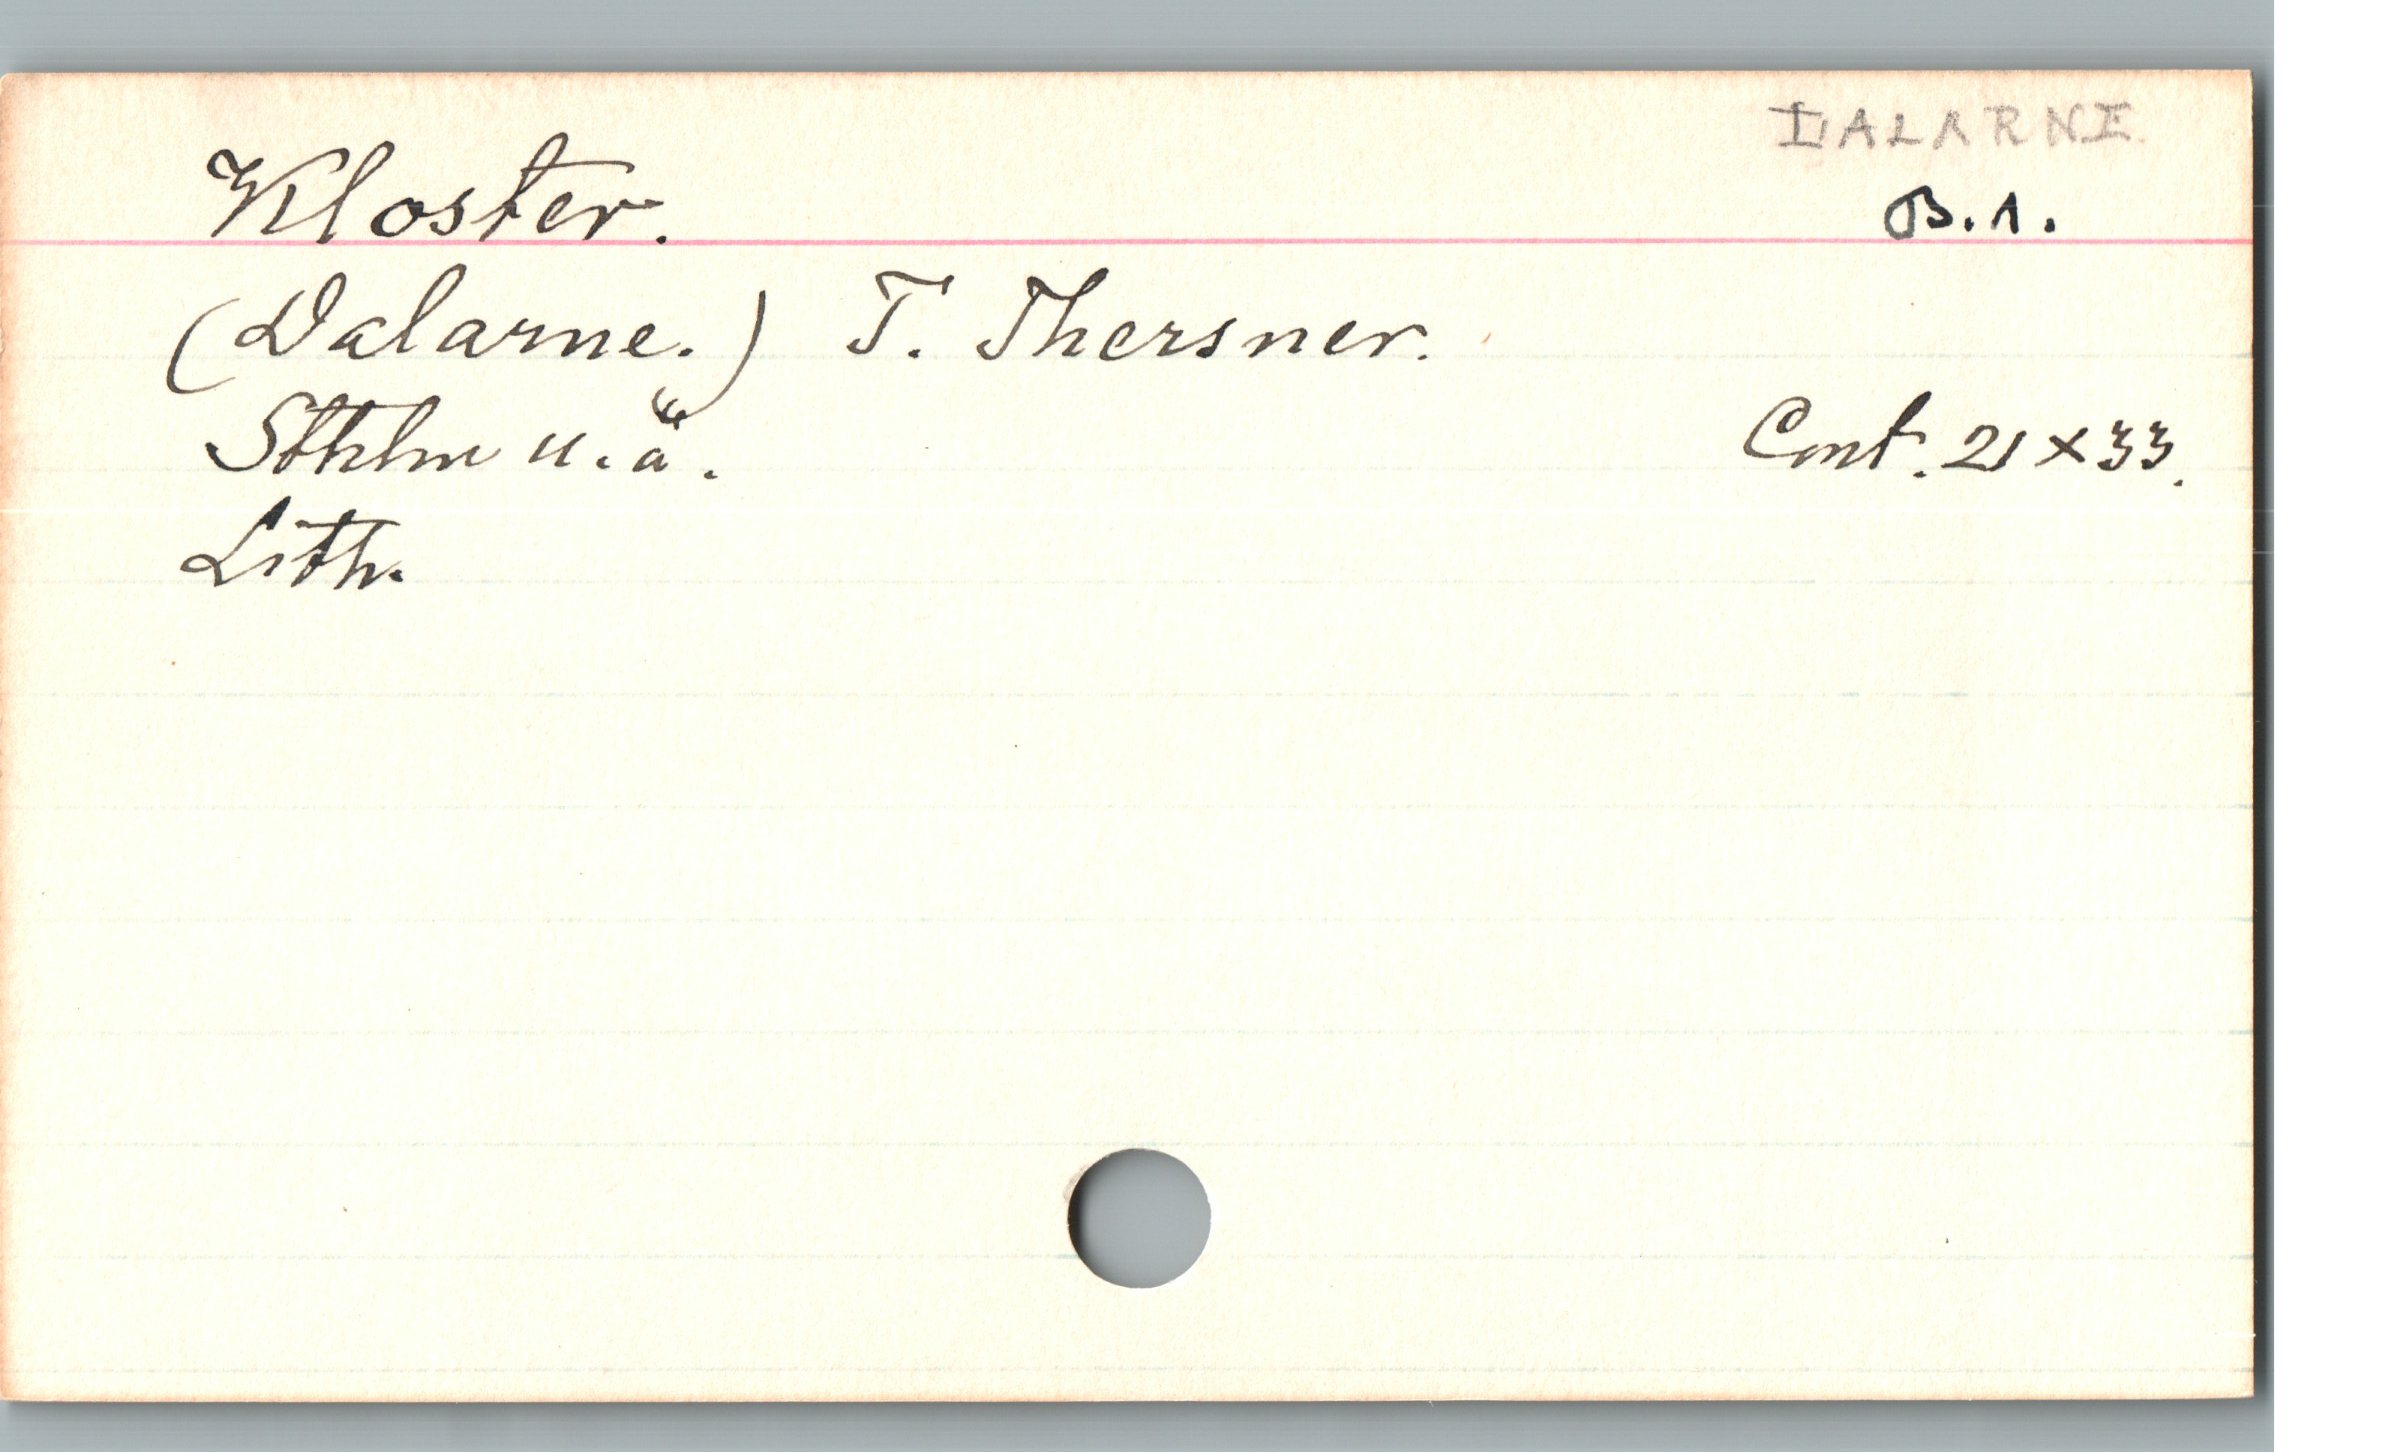 DALARNE.
Kloster.
B.1.
(Dalarne.) T. Thersner.
Sthlm u.ä.
Cont. 21 x 33.
Lith.